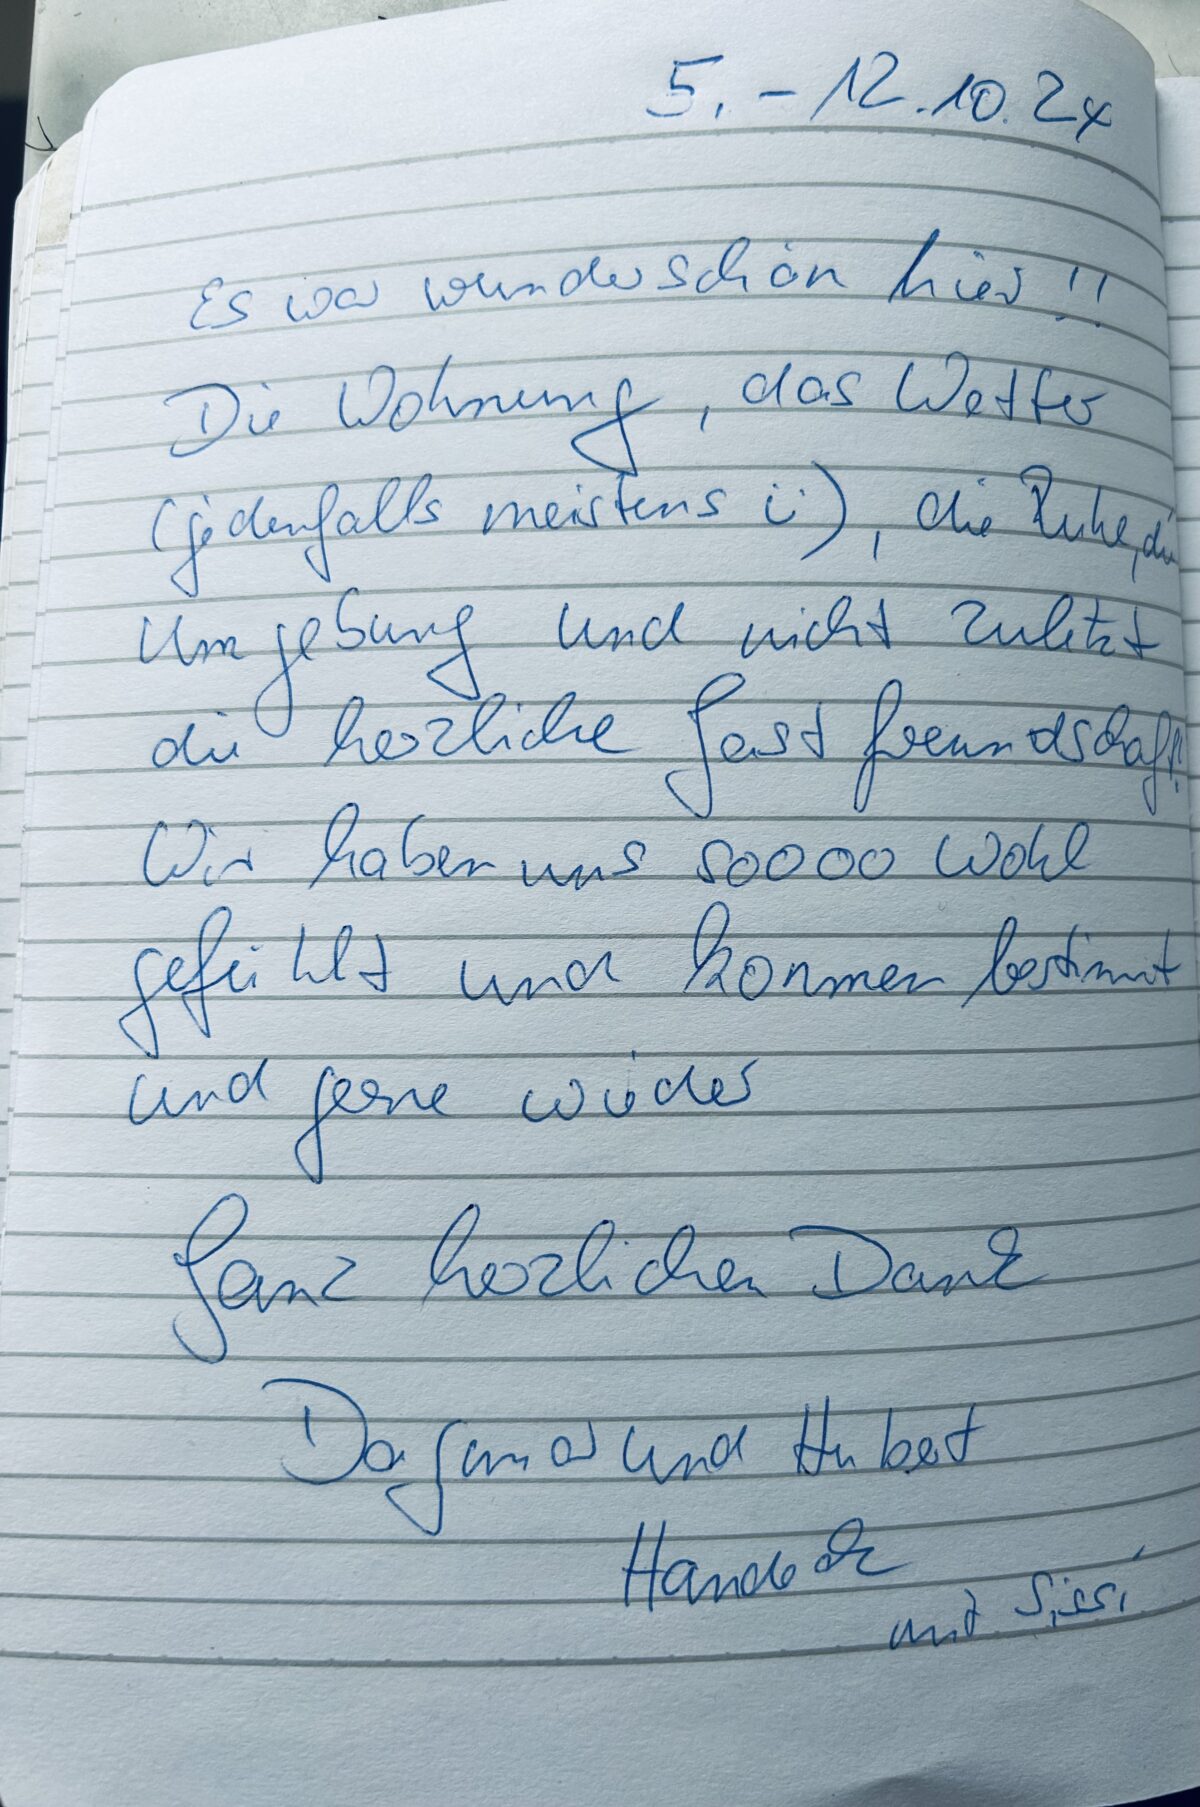 5. - 12.10.24
Es war wunderschön hier!!
Die Wohnung, das Wetter
(jedenfalls meistens ü), die Ruhe, die
Umgebung und nicht zuletzt
die herzliche Gastfreundschaft!
Wir haben uns soooo wohl
gefühlt und kommen bestimmt
und gerne wieder
Ganz herzlichen Dank
Dagmar und Hubert
mit Sissi